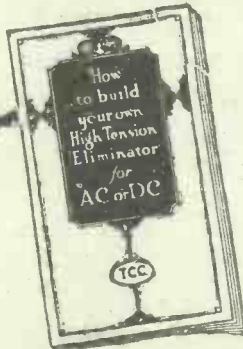 How
to build
your own
High Tension
Eliminator
for
AC or DC
TCC